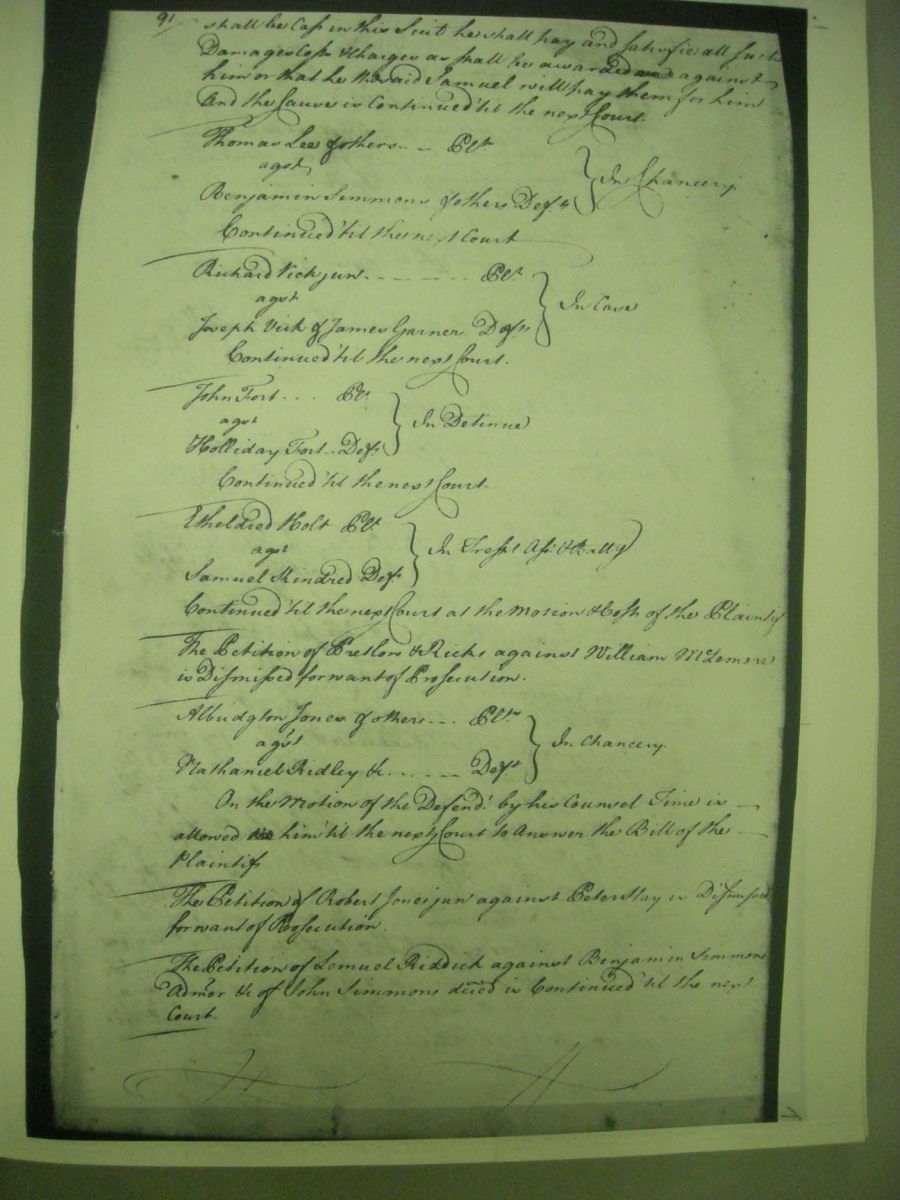 91
shall be Cast in this Suit he shall pay and satisfie all such
Damages Costs & Charges as shall be awarded against
him or that he the said Samuel will pay them for him
And the Cause is Continued 'til the next Court.
Thomas Lee & others - - Plts
agst
Benjamin Simmons & others Defts
In Chancery
Continued 'til the next Court
Richard Vick jun. - - - - - Plt.
agst
Joseph Vick & James Garner Defts
In Case
Continued 'til the next Court.
John Fort - - - Plt.
agst
Holliday Fort - Deft
In Detinue
Continued 'til the next Court.
Etheldred Holt Plt.
agst
Samuel Kindred Deft
In Trespt Asst & Batty
Continued 'til the next Court at the Motion & Costs of the Plaintif
The Petition of Pretlow & Ricks against William McLemore
is Dismissed for want of Prosecution.
Albridgton Jones & others - - - Plts
agst
Nathaniel Ridley &c. - - - - - Deft
In Chancery.
On the Motion of the Defendt by his Counsel Time is
allowed him 'til the next Court to Answer the Bill of the
Plaintifs
The Petition of Robert Jones jun against Peter Hay is Dismissed
for want of Prosecution.
The Petition of Lemuel Riddick against Benjamin Simmons
Admor &c of John Simmons deced is Continued 'til the next
Court.